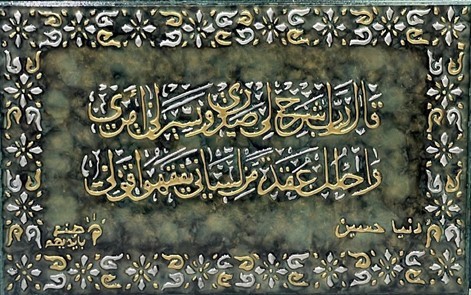 قال رب اشرح لي صدري ويسر لي أمري
واحلل عقدة من لساني يفقهوا قولي
دنيا حسين
صنع